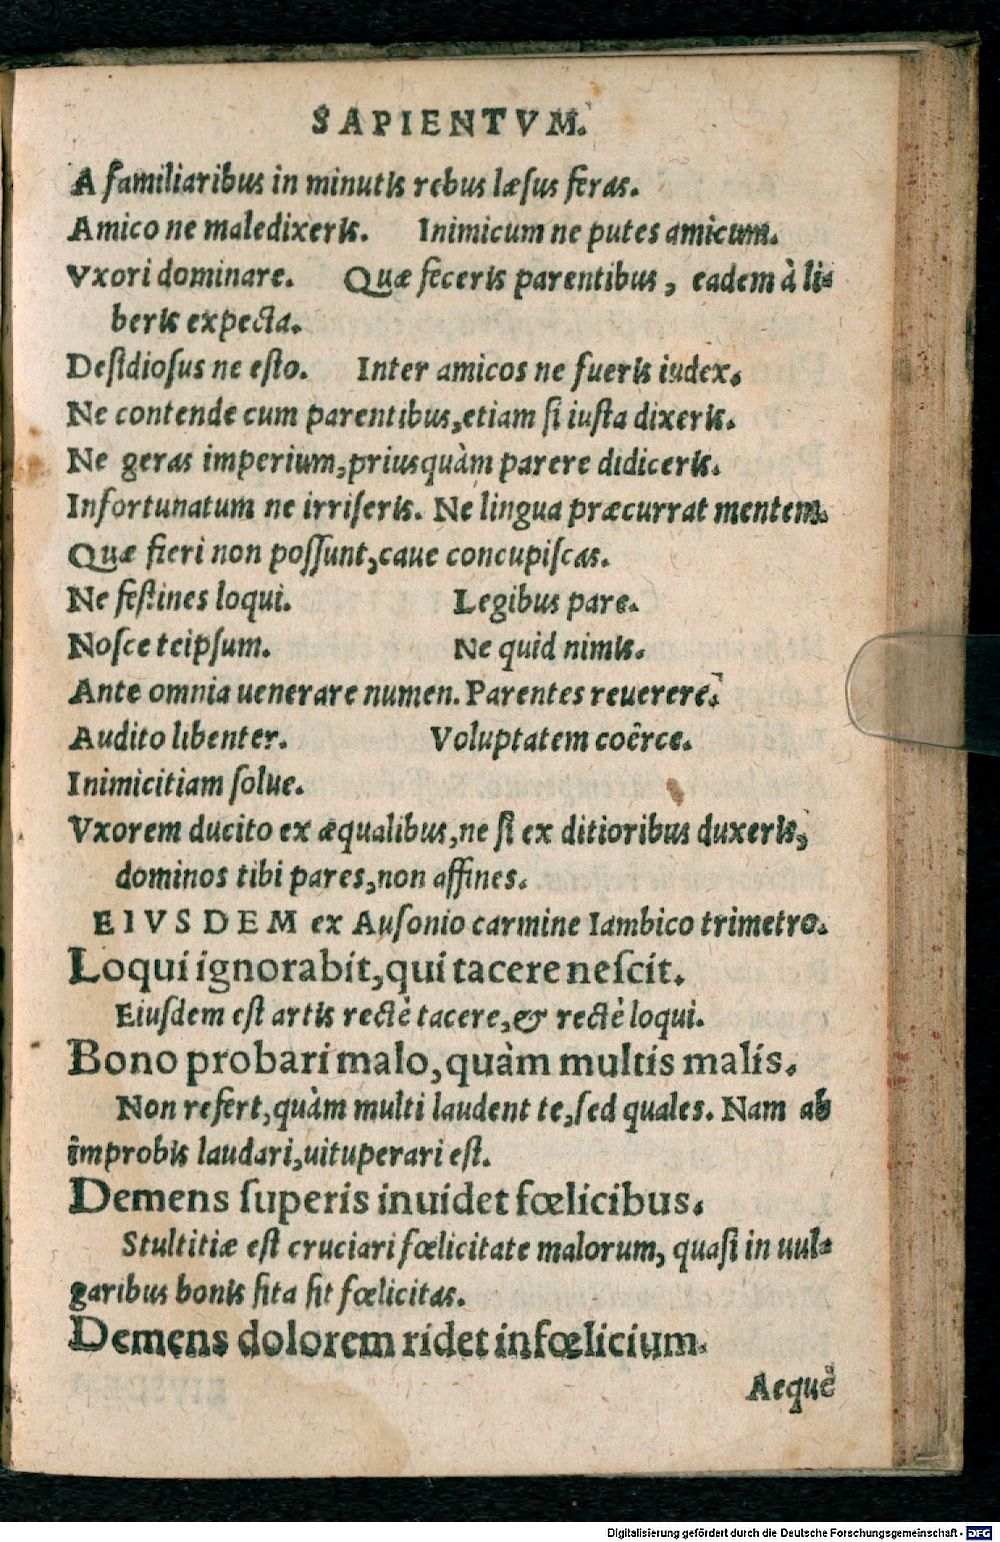 SAPIENTVM.
A familiaribus in minutis rebus læsus feras.
Amico ne maledixeris. Inimicum ne putes amicum.
Vxori dominare. Quæ feceris parentibus, eadem à li-
beris expecta.
Desidiosus ne esto. Inter amicos ne fueris iudex.
Ne contende cum parentibus, etiam si iusta dixeris.
Ne geras imperium, priusquàm parere didiceris.
Infortunatum ne irriseris. Ne lingua præcurrat mentem.
Quæ fieri non possunt, caue concupiscas.
Ne festines loqui. Legibus pare.
Nosce teipsum. Ne quid nimis.
Ante omnia uenerare numen. Parentes reuerere.
Audito libenter. Voluptatem coërce.
Inimicitiam solue.
Vxorem ducito ex æqualibus, ne si ex ditioribus duxeris,
dominos tibi pares, non affines.
EIVSDEM ex Ausonio carmine Iambico trimetro.
Loqui ignorabit, qui tacere nescit.
Eiusdem est artis rectè tacere, & rectè loqui.
Bono probari malo, quàm multis malis.
Non refert, quàm multi laudent te, sed quales. Nam ab
improbis laudari, uituperari est.
Demens superis inuidet fœlicibus.
Stultitiæ est cruciari fœlicitate malorum, quasi in uul-
garibus bonis sita sit fœlicitas.
Demens dolorem ridet infœlicium.
Aequè
Digitalisierung gefördert durch die Deutsche Forschungsgemeinschaft - DFG